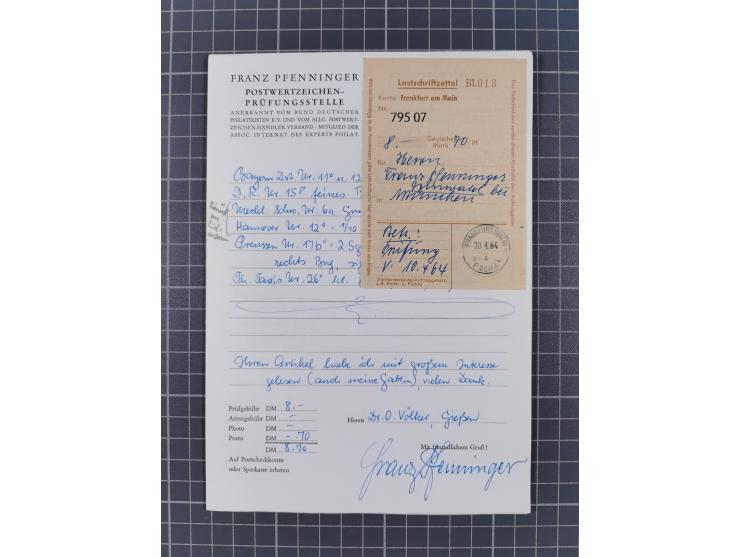 FRANZ PFENNINGER
POSTWERTZEICHEN-
PRÜFUNGSSTELLE
ANERKANNT VOM BUND DEUTSCHER
PHILATELISTEN E.V. UND VOM ALLG. POSTWERT-
ZEICHEN-HÄNDLER-VERBAND · MITGLIED DER
ASSOC. INTERNAT. DES EXPERTS PHILAT.
Lastschriftzettel BL018
Konto Frankfurt am Main
Nr.
795 07
8.— Deutsche Mark 70 Pf
für Herrn
Franz Pfenninger
Grünwald bei
in München
Betr.:
Prüfung
v. 10.4.64
FRANKFURT (MAIN)
20.4.64
PSCHA
Bayern Drt. Nr. 11° u. 12
D. R. Nr. 15
Meckl. Schw. Nr. 6a
Hannover Nr. 12° = 1/10
Preussen Nr. 17b° = 2 Sg
rechts
Th. Taxis Nr. 26°
Ihren Artikel habe ich mit großem Interesse
gelesen (auch meine Gattin), vielen Dank.
Prüfgebühr DM 8.-
Attestgebühr DM -
Photo DM -
Porto DM -.70
DM 8.70
Herrn Dr. O. Völker, Gießen
Mit freundlichem Gruß!
Franz Pfenninger
Auf Postscheckkonto
oder Sparkasse erbeten